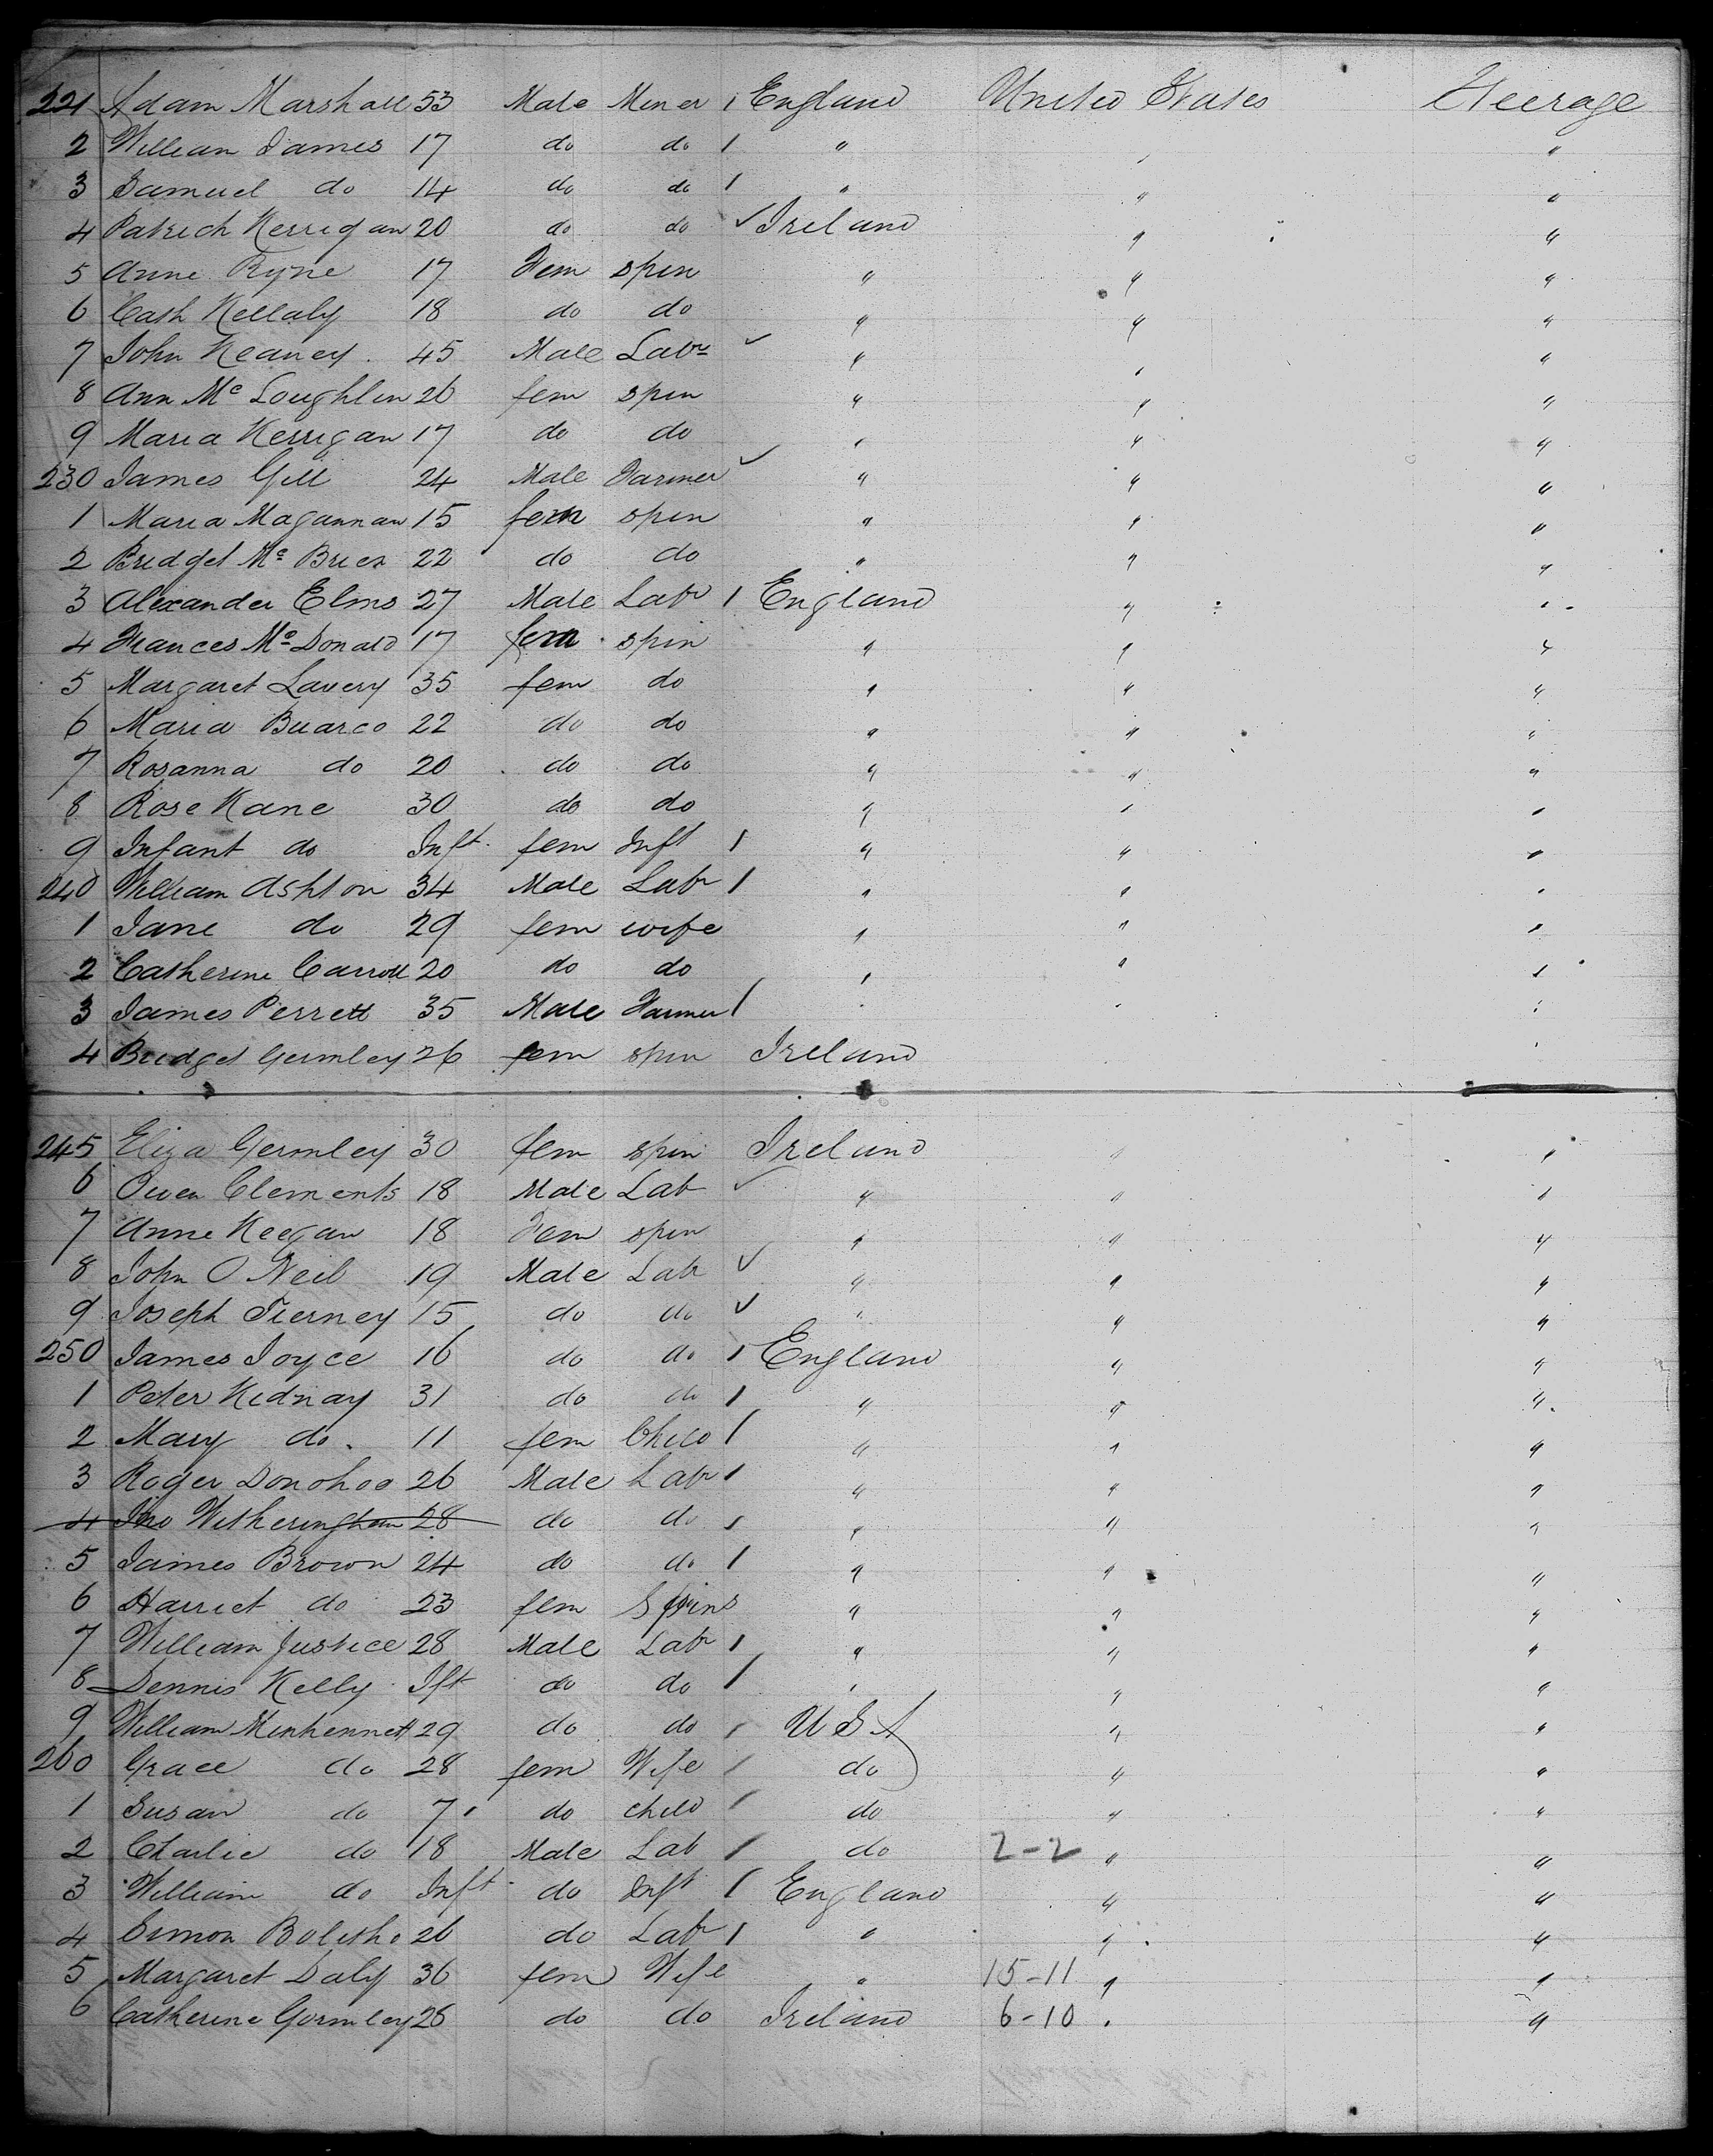 221 Adam Marshall 53 Male Miner 1 England United States Steerage
2 William James 17 do do 1 " " "
3 Samuel do 14 do do 1 " " "
4 Patrick Kerrigan 20 do do ✓ Ireland " "
5 Anne Ryne 17 Fem spin " " "
6 Cath Kellaly 18 do do " " "
7 John Keaney 45 Male Labr ✓ " " "
8 Ann Mc Loughlin 26 fem spin " " "
9 Maria Kerrigan 17 do do " " "
230 James Gill 24 Male Farmer ✓ " " "
1 Maria Magannan 15 fem spin " " "
2 Bridget Mc 22 do do " " "
3 Alexander Elms 27 Male Labr 1 England " "
4 Frances Mc Donald 17 fem spin " " "
5 Margaret Lavery 35 fem do " " "
6 Maria 22 do do " " "
7 Rosanna do 20 do do " " "
8 Rose Kane 30 do do " " "
9 Infant do Inft fem Inft 1 " " "
240 William Ashton 34 Male Labr 1 " " "
1 Jane do 29 fem wife " " "
2 Catherine Carroll 20 do do " " "
3 James Perrett 35 Male Farmer 1 " " "
4 Bridget Germley 26 fem spin Ireland "
245 Eliza Germley 30 fem spin Ireland " "
6 Owen Clements 18 Male Lab ✓ " " "
7 Anne Keegan 18 Fem spin " " "
8 John O Neil 19 Male Lab ✓ " " "
9 Joseph Tierney 15 do do ✓ " " "
250 James Joyce 16 do do 1 England " "
1 Peter Kidnay 31 do do 1 " " "
2 Mary do 11 fem Child 1 " " "
3 Roger Donohoo 26 Male Labr 1 " " "
4 Jno Witheringham 28 do do 1 " " "
5 James Brown 24 do do 1 " " "
6 Harriet do 23 fem Spins " " "
7 William Justice 28 Male Labr 1 " " "
8 Dennis Kelly Ift do do 1 " " "
9 William Minhennett 29 do do 1 U S A " "
260 Grace do 28 fem Wife 1 do " "
1 Susan do 7 do child 1 do " "
2 Charlie do 18 Male Lab 1 do 2-2 " "
3 William do Inft do Inft 1 England " "
4 Simon Bolitho 26 do Labr 1 " " "
5 Margaret Daly 36 fem Wife " 15-11 " "
6 Catherine Gormley 26 do do Ireland 6-10 " "